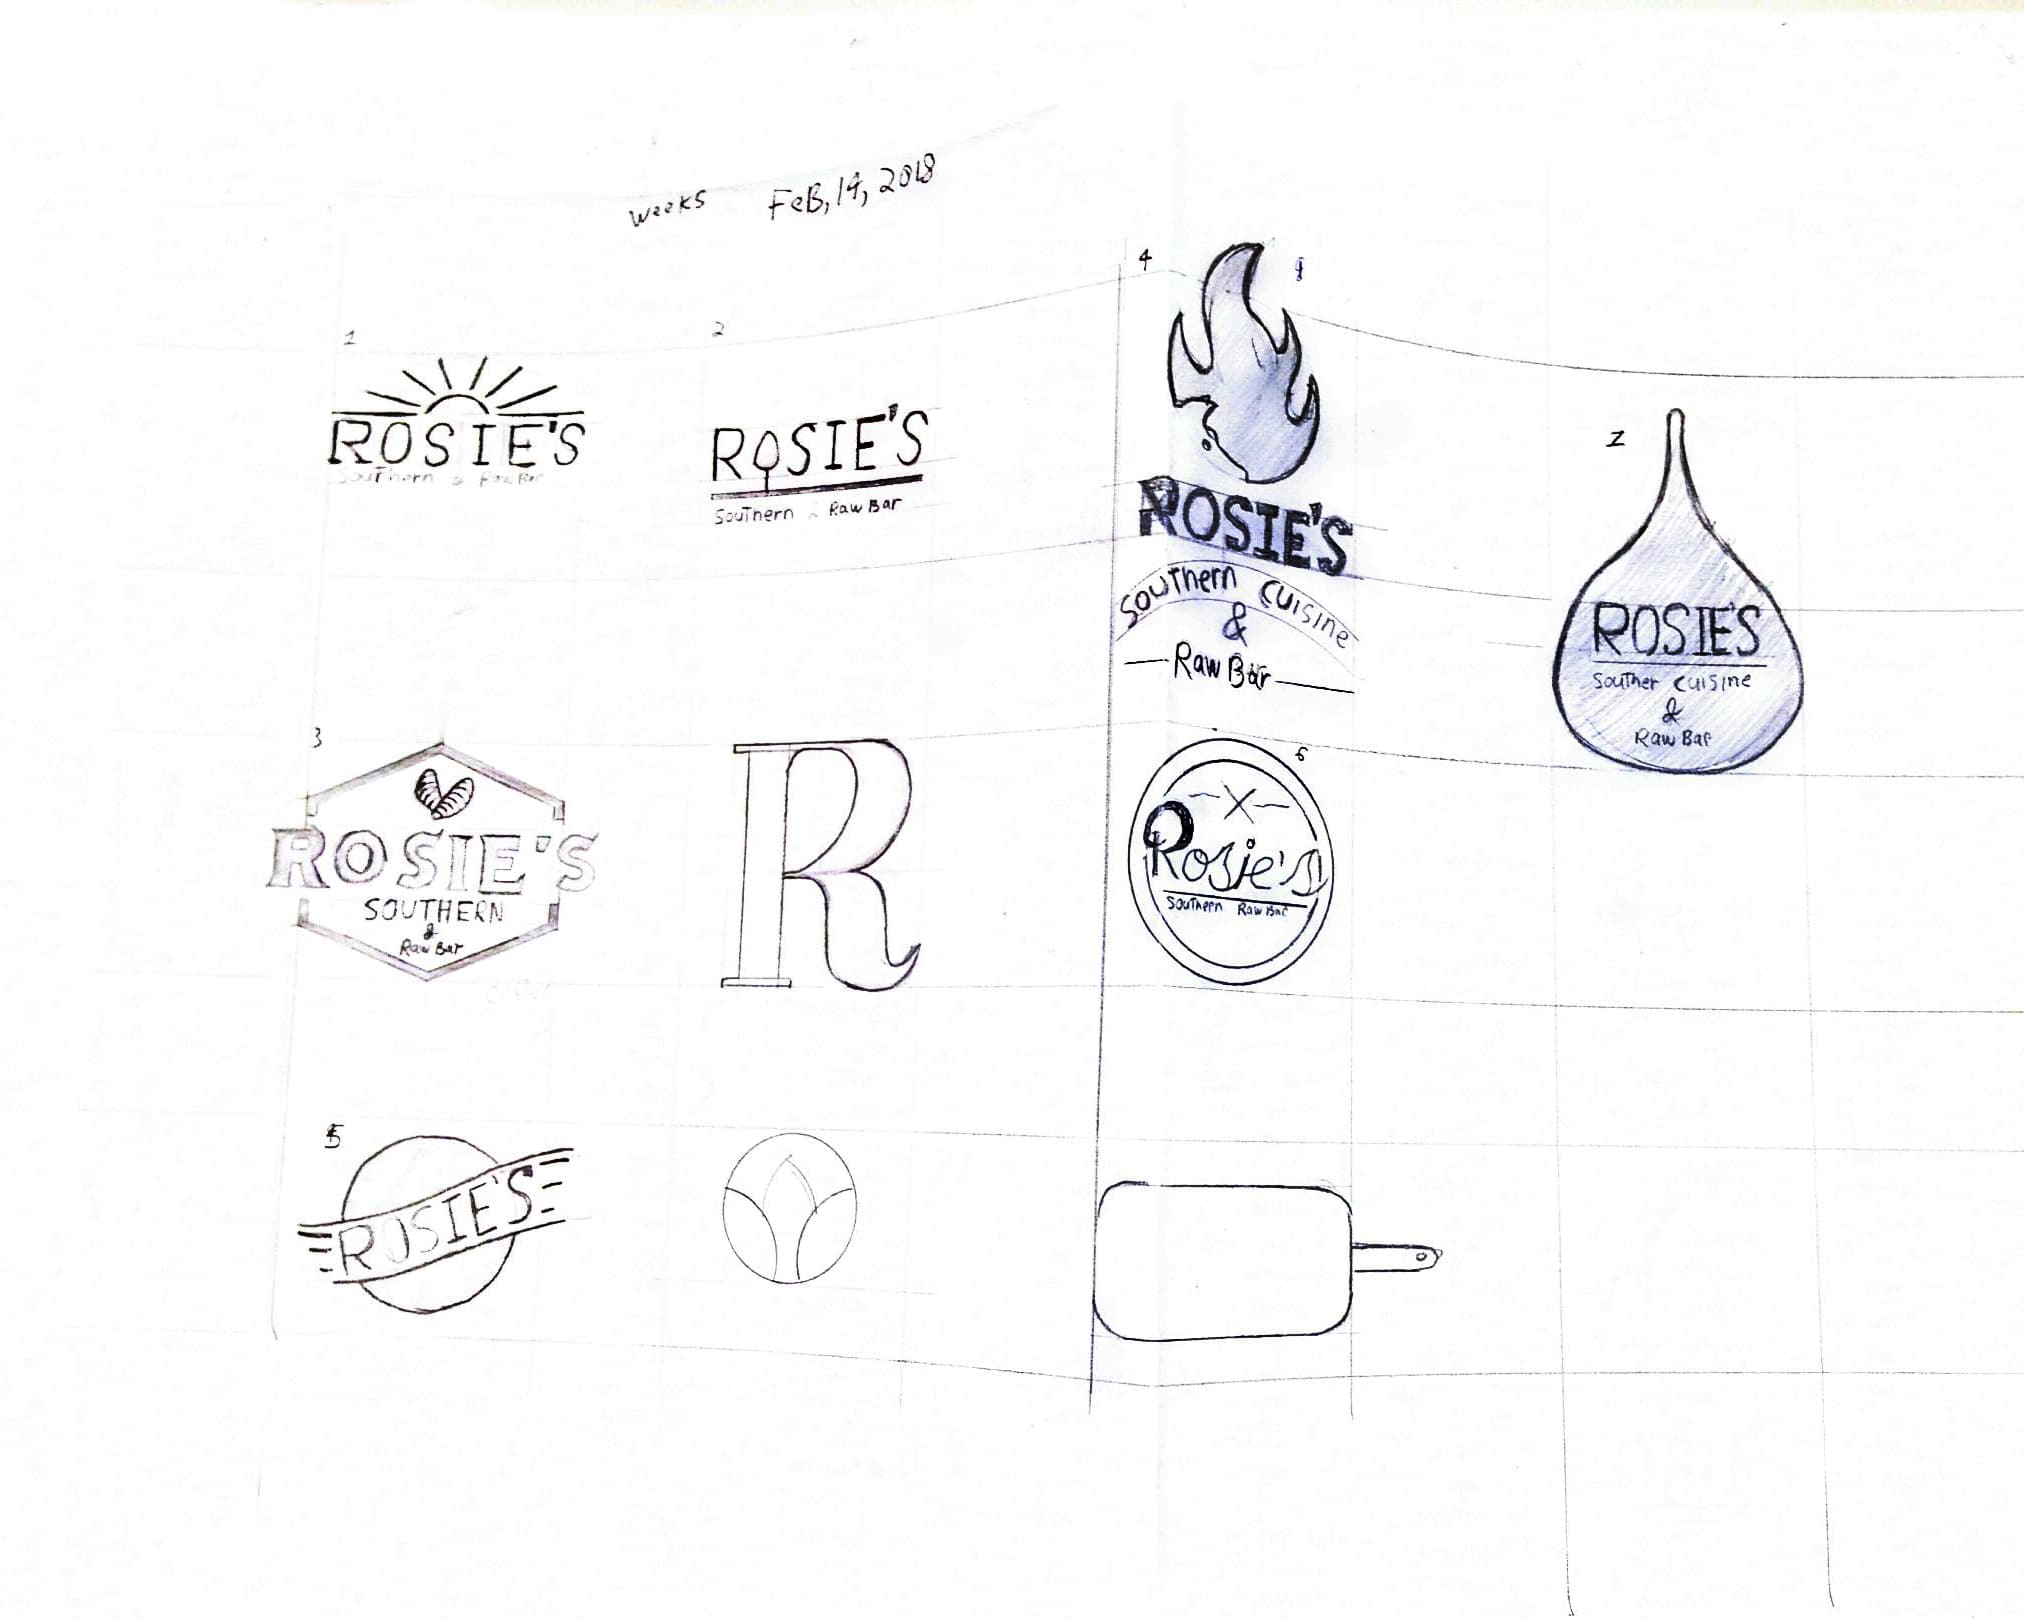 weeks FeB, 14, 2018
1
ROSIE'S
Southern & Raw Bar
2
ROSIE'S
Southern & Raw Bar
4
ROSIE'S
Southern Cuisine
&
Raw Bar
2
ROSIE'S
Souther Cuisine
&
Raw Bar
3
ROSIE'S
SOUTHERN
&
Raw Bar
R
6
Rosie's
Southern Raw Bar
5
ROSIE'S